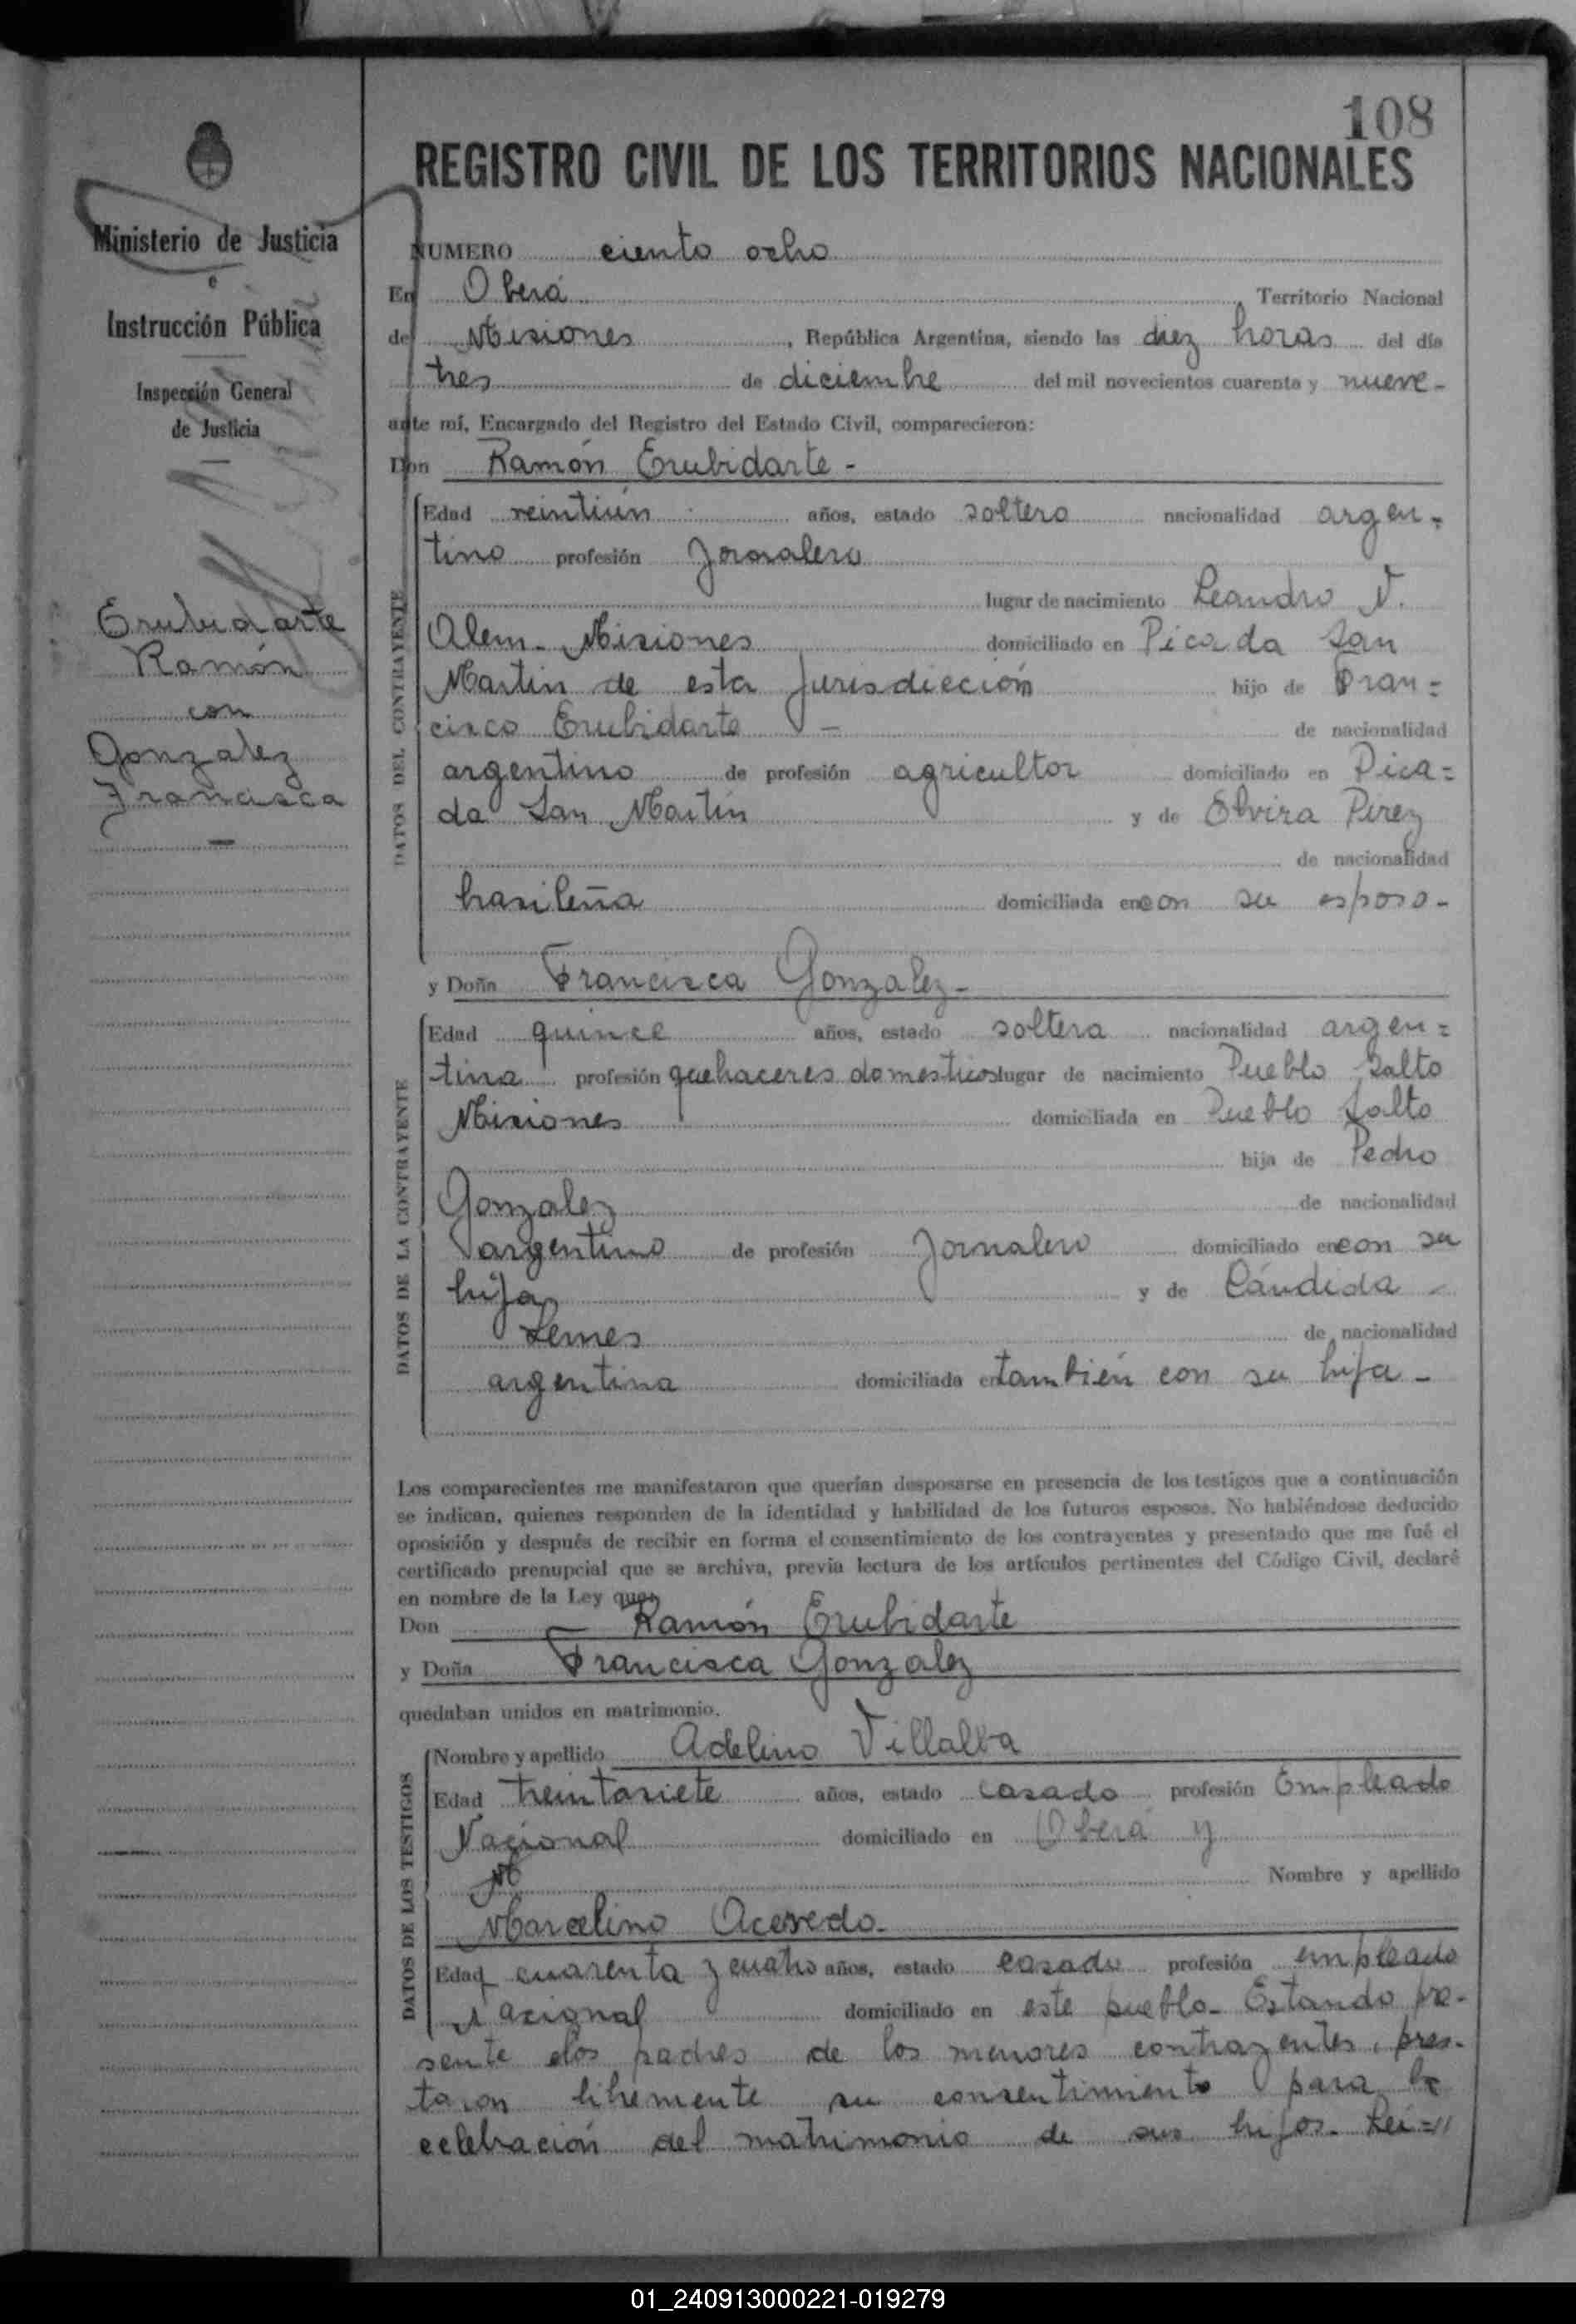 108
REGISTRO CIVIL DE LOS TERRITORIOS NACIONALES
Ministerio de Justicia
e
Instrucción Pública
Inspección General
de Justicia
Erubidarte
Ramón
con
Gonzalez
Francisca
NUMERO ciento ocho
En Oberá, Territorio Nacional
de Misiones, República Argentina, siendo las diez horas del día
tres de diciembre del mil novecientos cuarenta y nueve-
ante mí, Encargado del Registro del Estado Civil, comparecieron:
Don Ramón Erubidarte -
DATOS DEL CONTRAYENTE
Edad veintiún años, estado soltero nacionalidad argen-
tino profesión Jornalero
lugar de nacimiento Leandro N.
Alem- Misiones domiciliado en Picada San
Martin de esta Jurisdicción hijo de Fran=
cisco Erubidarte - de nacionalidad
argentino de profesión agricultor domiciliado en Pica=
da San Martín y de Elvira Pirez
de nacionalidad
brasileña domiciliada en con su esposo-
y Doña Francisca Gonzalez-
DATOS DE LA CONTRAYENTE
Edad quince años, estado soltera nacionalidad argen=
tina profesión quehaceres domesticos lugar de nacimiento Pueblo Salto
Misiones domiciliada en Pueblo Salto
hija de Pedro
Gonzalez de nacionalidad
argentino de profesión Jornalero domiciliado en con su
hija y de Cándida -
Lemes de nacionalidad
argentina domiciliada en también con su hija -
Los comparecientes me manifestaron que querían desposarse en presencia de los testigos que a continuación
se indican, quienes responden de la identidad y habilidad de los futuros esposos. No habiéndose deducido
oposición y después de recibir en forma el consentimiento de los contrayentes y presentado que me fué el
certificado prenupcial que se archiva, previa lectura de los artículos pertinentes del Código Civil, declaré
en nombre de la Ley que:
Don Ramón Erubidarte
y Doña Francisca Gonzalez
quedaban unidos en matrimonio.
DATOS DE LOS TESTIGOS
Nombre y apellido Adelino Villalba
Edad treintasiete años, estado casado profesión Empleado
Nacional domiciliado en Oberá y
Nombre y apellido
Marcelino Acevedo-
Edad cuarenta y cuatro años, estado casado profesión empleado
Nacional domiciliado en este pueblo- Estando pre-
sente los padres de los menores contrayentes, pres-
taron libremente su consentimiento para la
celebración del matrimonio de sus hijos- Leí="
01_240913000221-019279